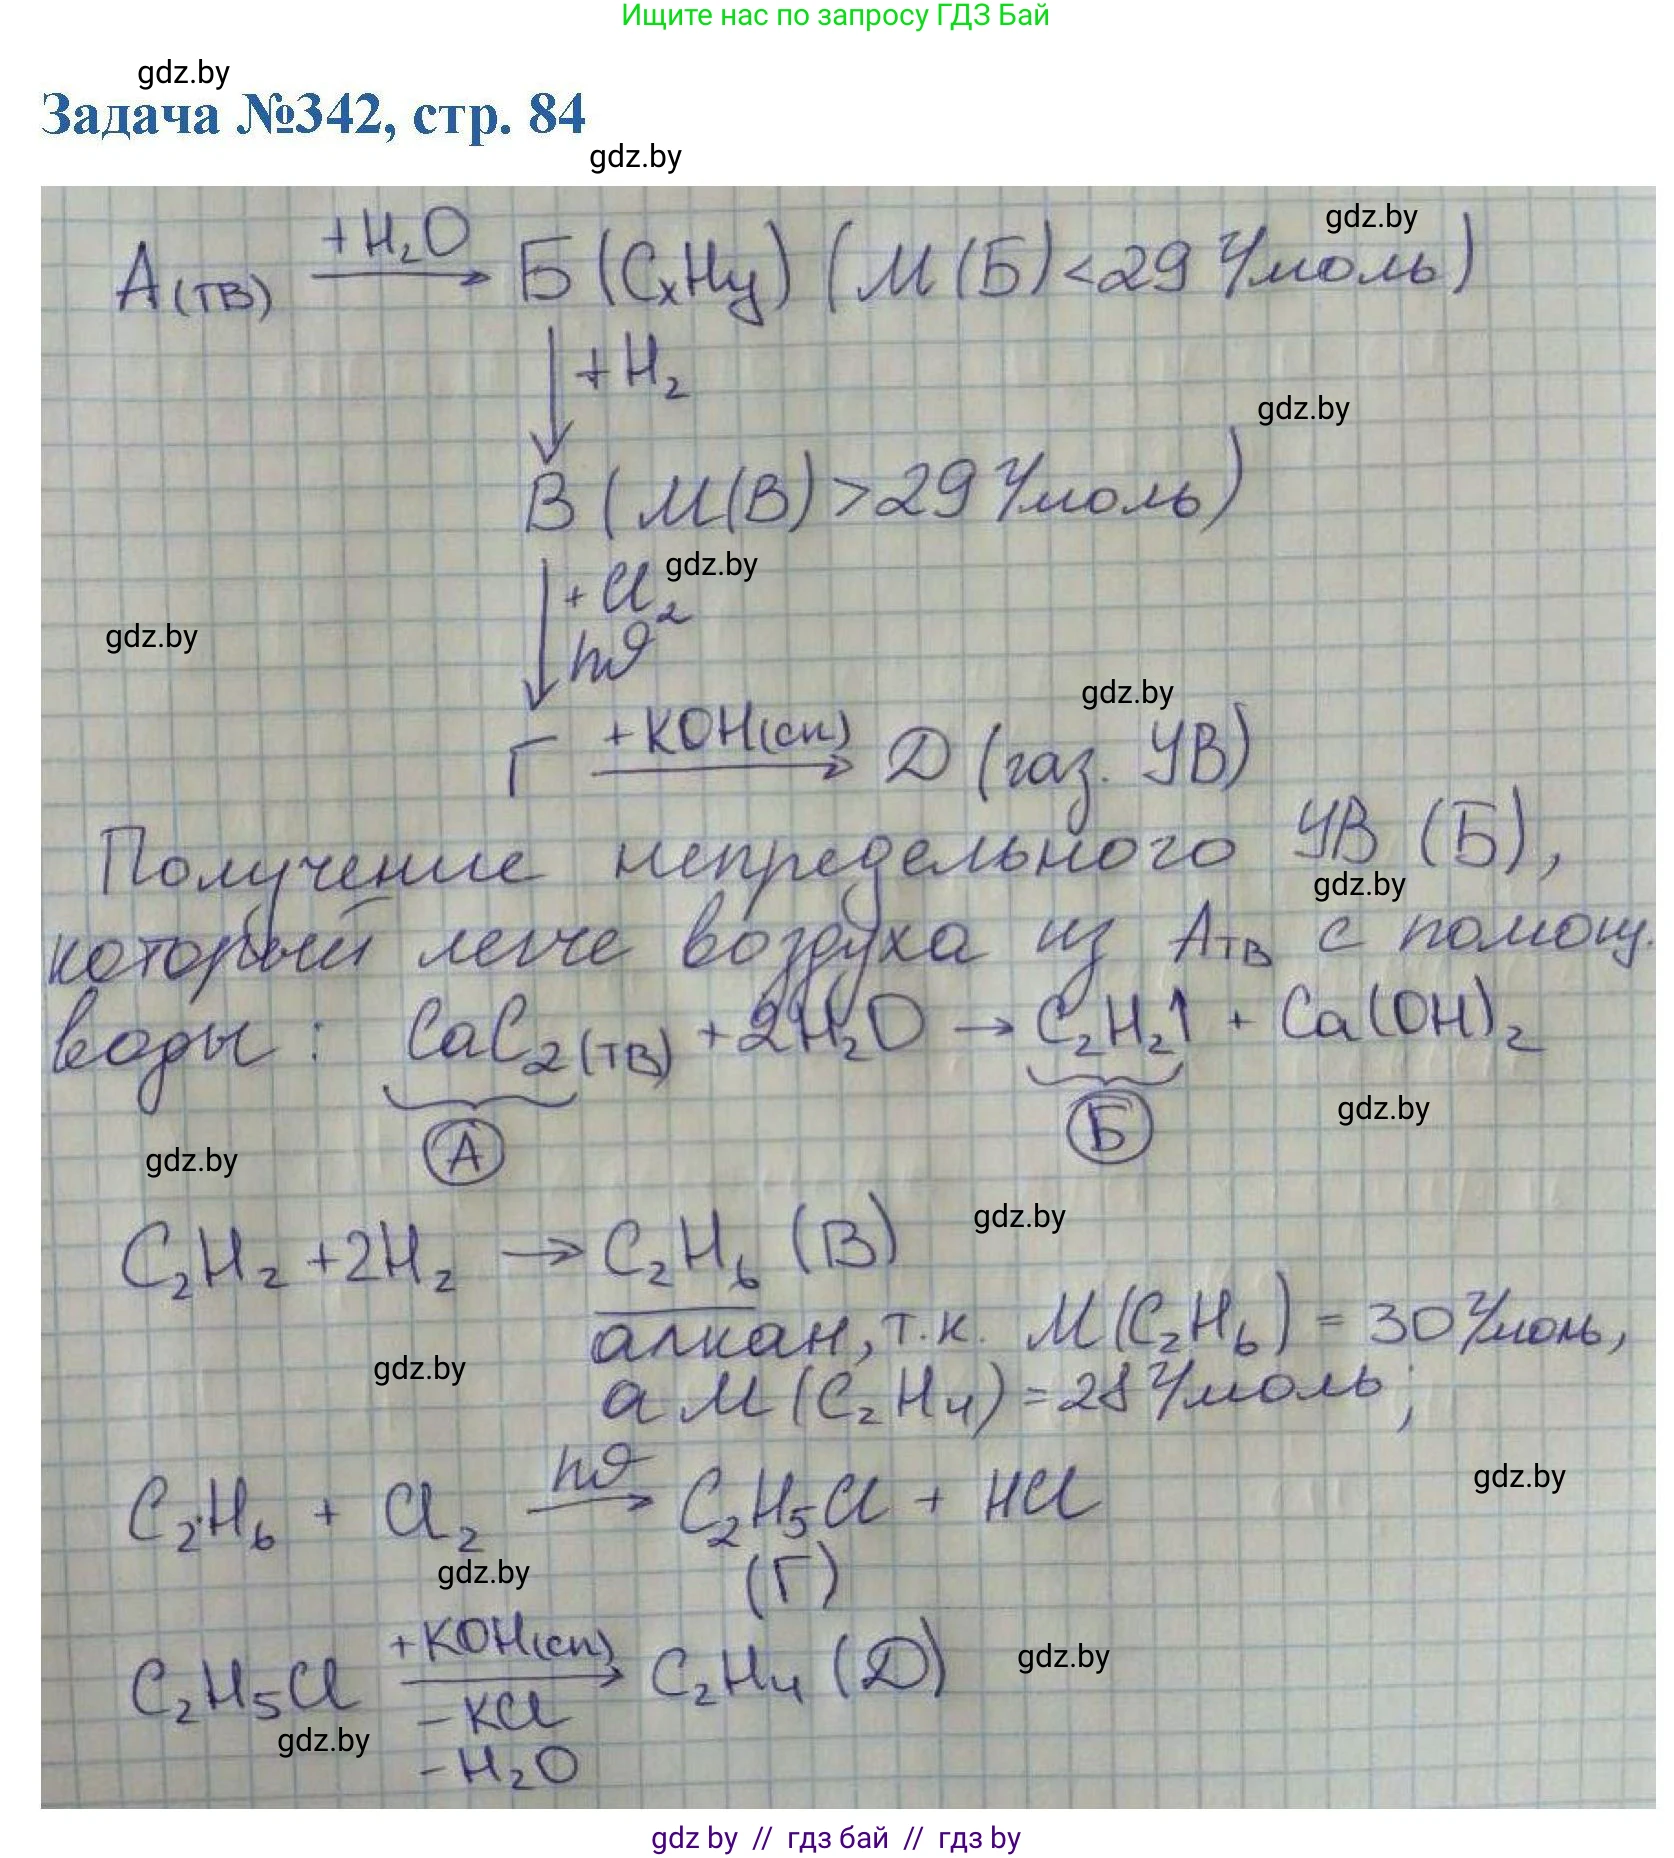 Ищите нас по запросу ГДЗ Бай
gdz.by
Задача №342, стр. 84
gdz.by
gdz.by
A(тв) +H₂O → Б (CxHy) (M(Б) < 29 г/моль)
↓ +H₂
gdz.by
В (M(В) > 29 г/моль)
gdz.by
↓ +Cl₂
hϑ
gdz.by
gdz.by
Г +KOH(сп) → Д (газ. УВ)
Получение непредельного УВ (Б),
gdz.by
который легче воздуха из Aтв с помощ.
воды: CaC₂(тв) + 2H₂O → C₂H₂↑ + Ca(OH)₂
gdz.by
А Б
gdz.by
gdz.by
C₂H₂ + 2H₂ → C₂H₆ (В)
алкан, т.к. M(C₂H₆) = 30 г/моль,
gdz.by
а M(C₂H₄) = 28 г/моль;
gdz.by
C₂H₆ + Cl₂ hϑ → C₂H₅Cl + HCl
gdz.by
(Г)
C₂H₅Cl +KOH(сп) → C₂H₄ (Д)
gdz.by
-KCl
gdz.by
-H₂O
gdz by // гдз бай // гдз by